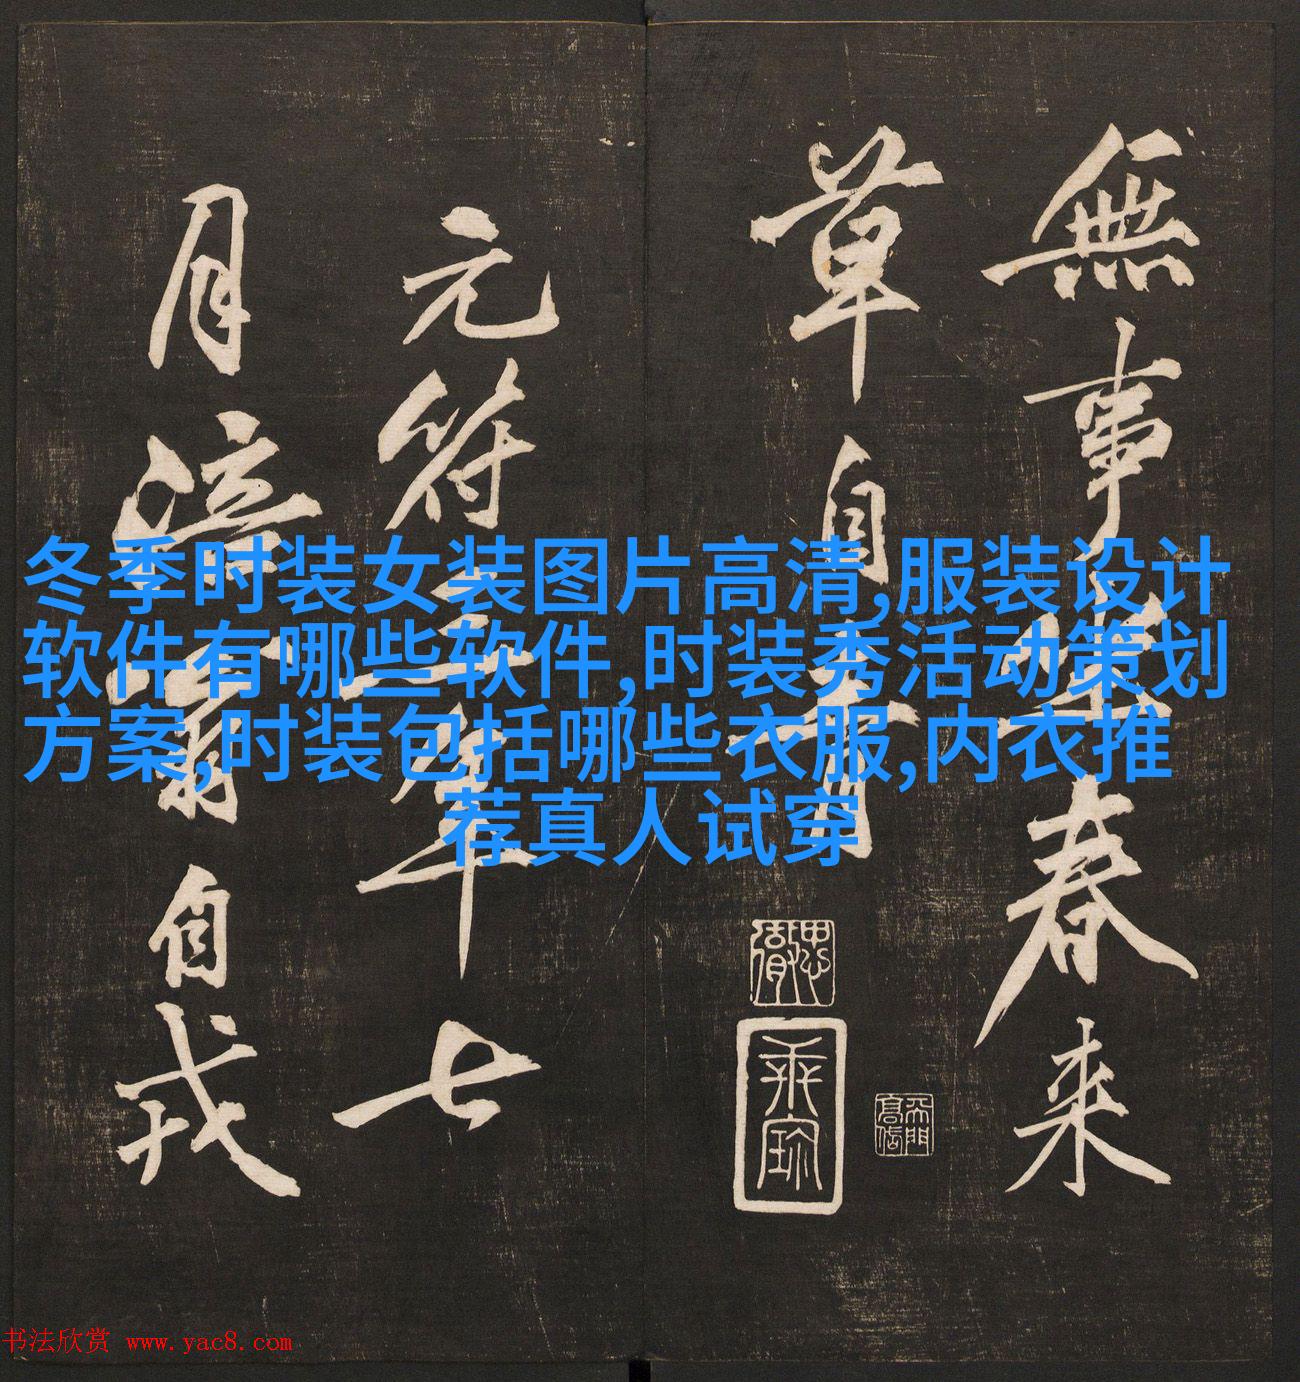 無事坐春来
草自青
元符三年七
月涪翁自戎
冬季时装女装图片高清,服装设计
软件有哪些软件,时装秀活动策划
方案,时装包括哪些衣服,内衣推
荐真人试穿
书法欣赏 www.yac8.com